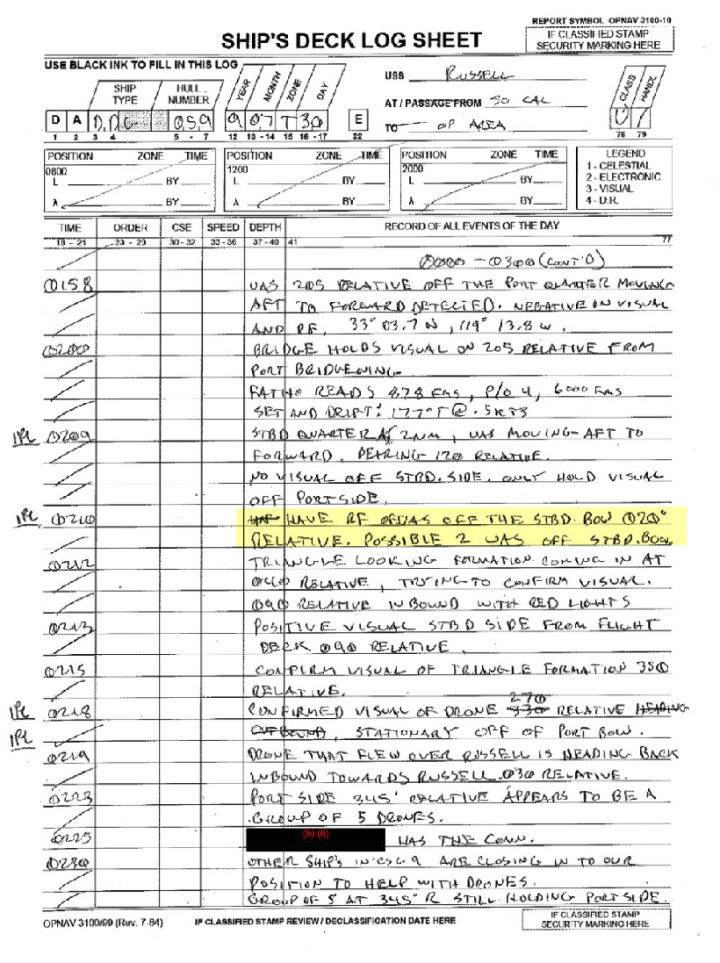 REPORT SYMBOL OPNAV 3100-10
SHIP'S DECK LOG SHEET
IF CLASSIFIED STAMP
SECURITY MARKING HERE
USE BLACK INK TO FILL IN THIS LOG
SHIP TYPE HULL NUMBER YEAR MONTH ZONE DAY
USS RUSSELL
AT / PASSAGE FROM SO CAL
TO OP AREA
CLASS HANDL
D A D.D.G 059 9 07 T 30 E U
1 2 3 4 5 - 7 12 13 - 14 15 16 - 17 22 78 79
POSITION ZONE TIME POSITION ZONE TIME POSITION ZONE TIME LEGEND
0800 1200 2000
L BY L BY L BY
λ BY λ BY λ BY
1 - CELESTIAL
2 - ELECTRONIC
3 - VISUAL
4 - D.R.
TIME ORDER CSE SPEED DEPTH RECORD OF ALL EVENTS OF THE DAY
18 - 21 23 - 29 30 - 32 33 - 36 37 - 40 41 77
0000 - 0300 (CONT'D)
0158 UAS 205 RELATIVE OFF THE PORT QUARTER MOVING
AFT TO FORWARD DETECTED. NEGATIVE ON VISUAL
AND RF. 33° 03.7 N, 119° 13.8 W.
0200 BRIDGE HOLDS VISUAL ON 205 RELATIVE FROM
PORT BRIDGEWING.
FATHO READS 878 FMS, P/O 4, 6000 FMS
SET AND DRIFT: 177°T @ .5KTS
0209 STBD QUARTER AT 2NM, UAS MOVING AFT TO
FORWARD. BEARING 120 RELATIVE.
NO VISUAL OFF STBD. SIDE. ONLY HOLD VISUAL
OFF PORT SIDE.
0210 HAVE RF OF UAS OFF THE STBD. BOW 020°
RELATIVE. POSSIBLE 2 UAS OFF STBD. BOW
0212 TRIANGLE LOOKING FORMATION COMING IN AT
040 RELATIVE, TRYING TO CONFIRM VISUAL.
090 RELATIVE INBOUND WITH RED LIGHTS
0213 POSITIVE VISUAL STBD SIDE FROM FLIGHT
DECK 090 RELATIVE.
0215 CONFIRM VISUAL OF TRIANGLE FORMATION 350
RELATIVE.
0218 CONFIRMED VISUAL OF DRONE 270 330 RELATIVE HEADING
OUTBOUND, STATIONARY OFF OF PORT BOW.
0219 DRONE THAT FLEW OVER RUSSELL IS HEADING BACK
INBOUND TOWARDS RUSSELL 030 RELATIVE.
0223 PORT SIDE 345° RELATIVE APPEARS TO BE A
GROUP OF 5 DRONES.
0225 (b) (6) HAS THE CONN.
0230 OTHER SHIPS IN CSG 9 ARE CLOSING IN TO OUR
POSITION TO HELP WITH DRONES.
GROUP OF 5 AT 345° R STILL HOLDING PORT SIDE.
OPNAV 3100/99 (Rev. 7-84) IF CLASSIFIED STAMP REVIEW / DECLASSIFICATION DATE HERE
IF CLASSIFIED STAMP
SECURITY MARKING HERE